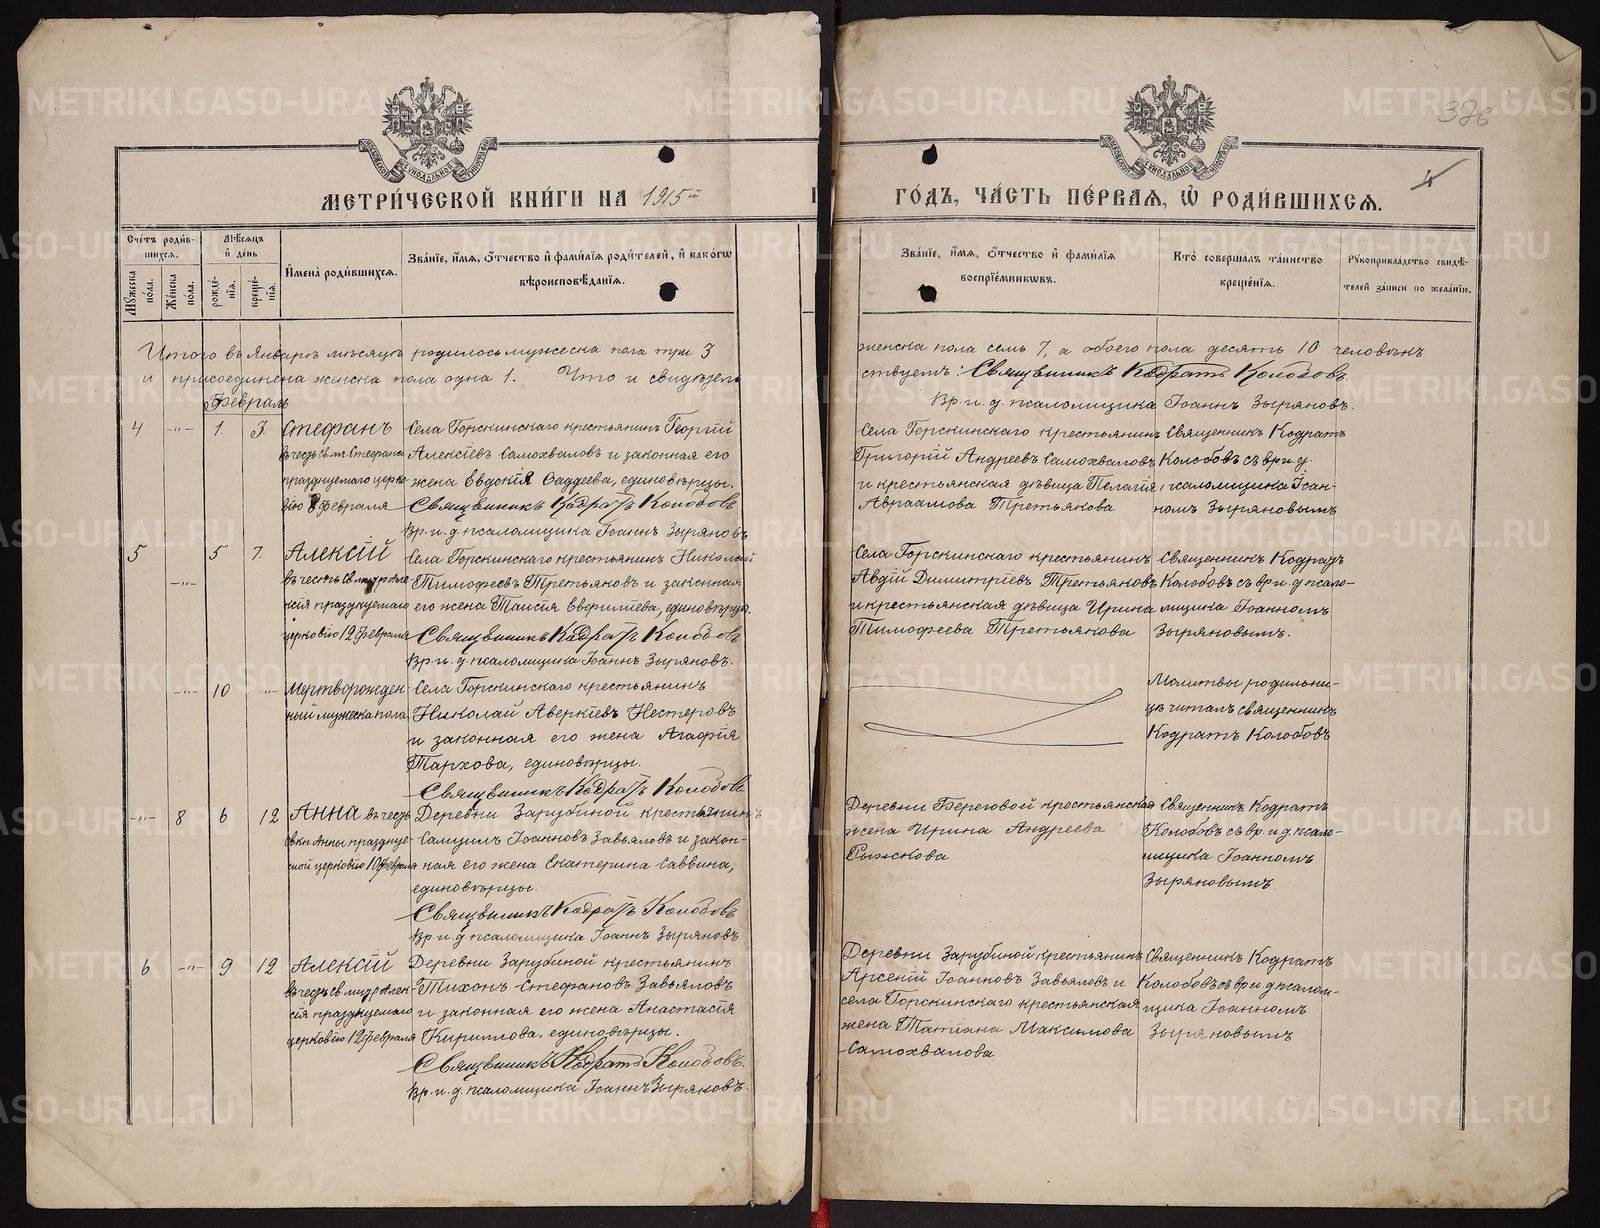 METRIKI.GASO-URAL.RU
376
4
МЕТРИ́ЧЕСКОЙ КНИ́ГИ НА 1915й
ГО́ДЪ, ЧА́СТЬ ПЕ́РВАѦ, Ѡ҆ РОДИ́ВШИХСѦ.
Сче́тъ роди́вшихсѧ.
Мꙋ́жеска по́ла.
Же́нска по́ла.
Мѣ́сѧцъ и҆ де́нь
рожде́нїѧ.
креще́нїѧ.
И҆мена̀ роди́вшихсѧ.
Зва́нїе, и҆́мѧ, ѻ҆́тчество и҆ фами́лїѧ роди́телей, и҆ како́гѡ вѣроисповѣ́данїѧ.
Зва́нїе, и҆́мѧ, ѻ҆́тчество и҆ фами́лїѧ воспрїе́мникѡвъ.
Кто̀ соверша́лъ та́инство креще́нїѧ.
Рꙋкоприкла́дство свидѣ́телей за́писи по жела́нїю.
Итого въ Январѣ мѣсяцѣ родилось мужеска пола три 3
женска пола семь 7, а обоего пола десять 10 человѣкъ
и присоединена женска пола одна 1. Что и свидѣтель
ствуетъ: Священникъ Кодратъ Колобовъ.
Вр. и. д. псаломщика Іоаннъ Зыряновъ.
Февраль
4 -"- 1. 3. Стефанъ
въ честь св. мч. Стефана
празднуемаго церко
вію 8 Февраля
Села Горскинскаго крестьянинъ Георгій
Алексіевъ Самохваловъ и законная его
жена Евдокія Фаддеева, единовѣрцы.
Священникъ Кодратъ Колобовъ
Вр. и. д. псаломщика Іоаннъ Зыряновъ
Села Горскинскаго крестьянинъ
Григорій Андреевъ Самохваловъ
и крестьянская дѣвица Пелагія
Авраамова Третьякова
Священникъ Кодратъ
Колобовъ съ вр. и. д.
псаломщика Іоан-
номъ Зыряновымъ
5 -"- 5 7. Алексій
въ честь св. митр. Але
ксія празднуемаго
церковію 12 Февраля
Села Горскинскаго крестьянинъ Николай
Тимофеевъ Третьяковъ и законная
его жена Таисія Евфиміева, единовѣрцы.
Священникъ Кодратъ Колобовъ
Вр. и. д. псаломщика Іоаннъ Зыряновъ.
Села Горскинскаго крестьянинъ
Авдій Димитріевъ Третьяковъ
и крестьянская дѣвица Ирина
Тимофеева Третьякова
Священникъ Кодратъ
Колобовъ съ вр. и. д. псало-
мщика Іоанномъ
Зыряновымъ.
-"- 10 -"- Мертворожден
ный мужеска пола
Села Горскинскаго крестьянинъ
Николай Аверкіевъ Нестеровъ
и законная его жена Агафія
Тархова, единовѣрцы.
Священникъ Кодратъ Колобовъ
Молитвы родильни-
цѣ читалъ священникъ
Кодратъ Колобовъ
-"- 8 6 12 Анна въ честь
св. кн. Анны праздну
емой церковію 10 Февраля
Деревни Зарубиной крестьянинъ
Самуилъ Іоанновъ Завьяловъ и закон-
ная его жена Екатерина Саввина,
единовѣрцы.
Священникъ Кодратъ Колобовъ
Вр. и. д. псаломщика Іоаннъ Зыряновъ
Деревни Береговой крестьянская
жена Ирина Андреева
Рыжкова
Священникъ Кодратъ
Колобовъ съ вр. и. д. псало-
мщика Іоанномъ
Зыряновымъ
6 -"- 9 12 Алексій
въ честь св. митр. Алек-
сія празднуемаго
церковію 12 Февраля
Деревни Зарубиной крестьянинъ
Тихонъ Стефановъ Завьяловъ
и законная его жена Анастасія
Кириллова, единовѣрцы.
Священникъ Кодратъ Колобовъ.
Вр. и. д. псаломщика Іоаннъ Зыряновъ.
Деревни Зарубиной крестьянинъ
Арсеній Іоанновъ Завьяловъ и
села Горскинскаго крестьянская
жена Татіана Максимова
Самохвалова
Священникъ Кодратъ
Колобовъ съ вр. и. д. псалом-
щика Іоанномъ
Зыряновымъ